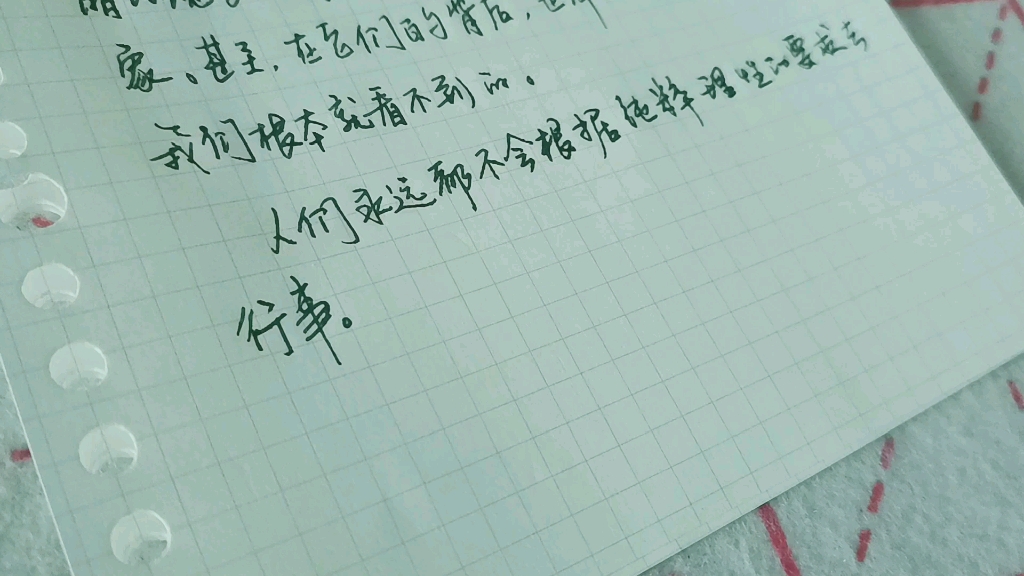 象。甚至,在它们的背后,也许
我们根本就看不到的。
人们永远都不会根据纯粹理性的要求去
行事。